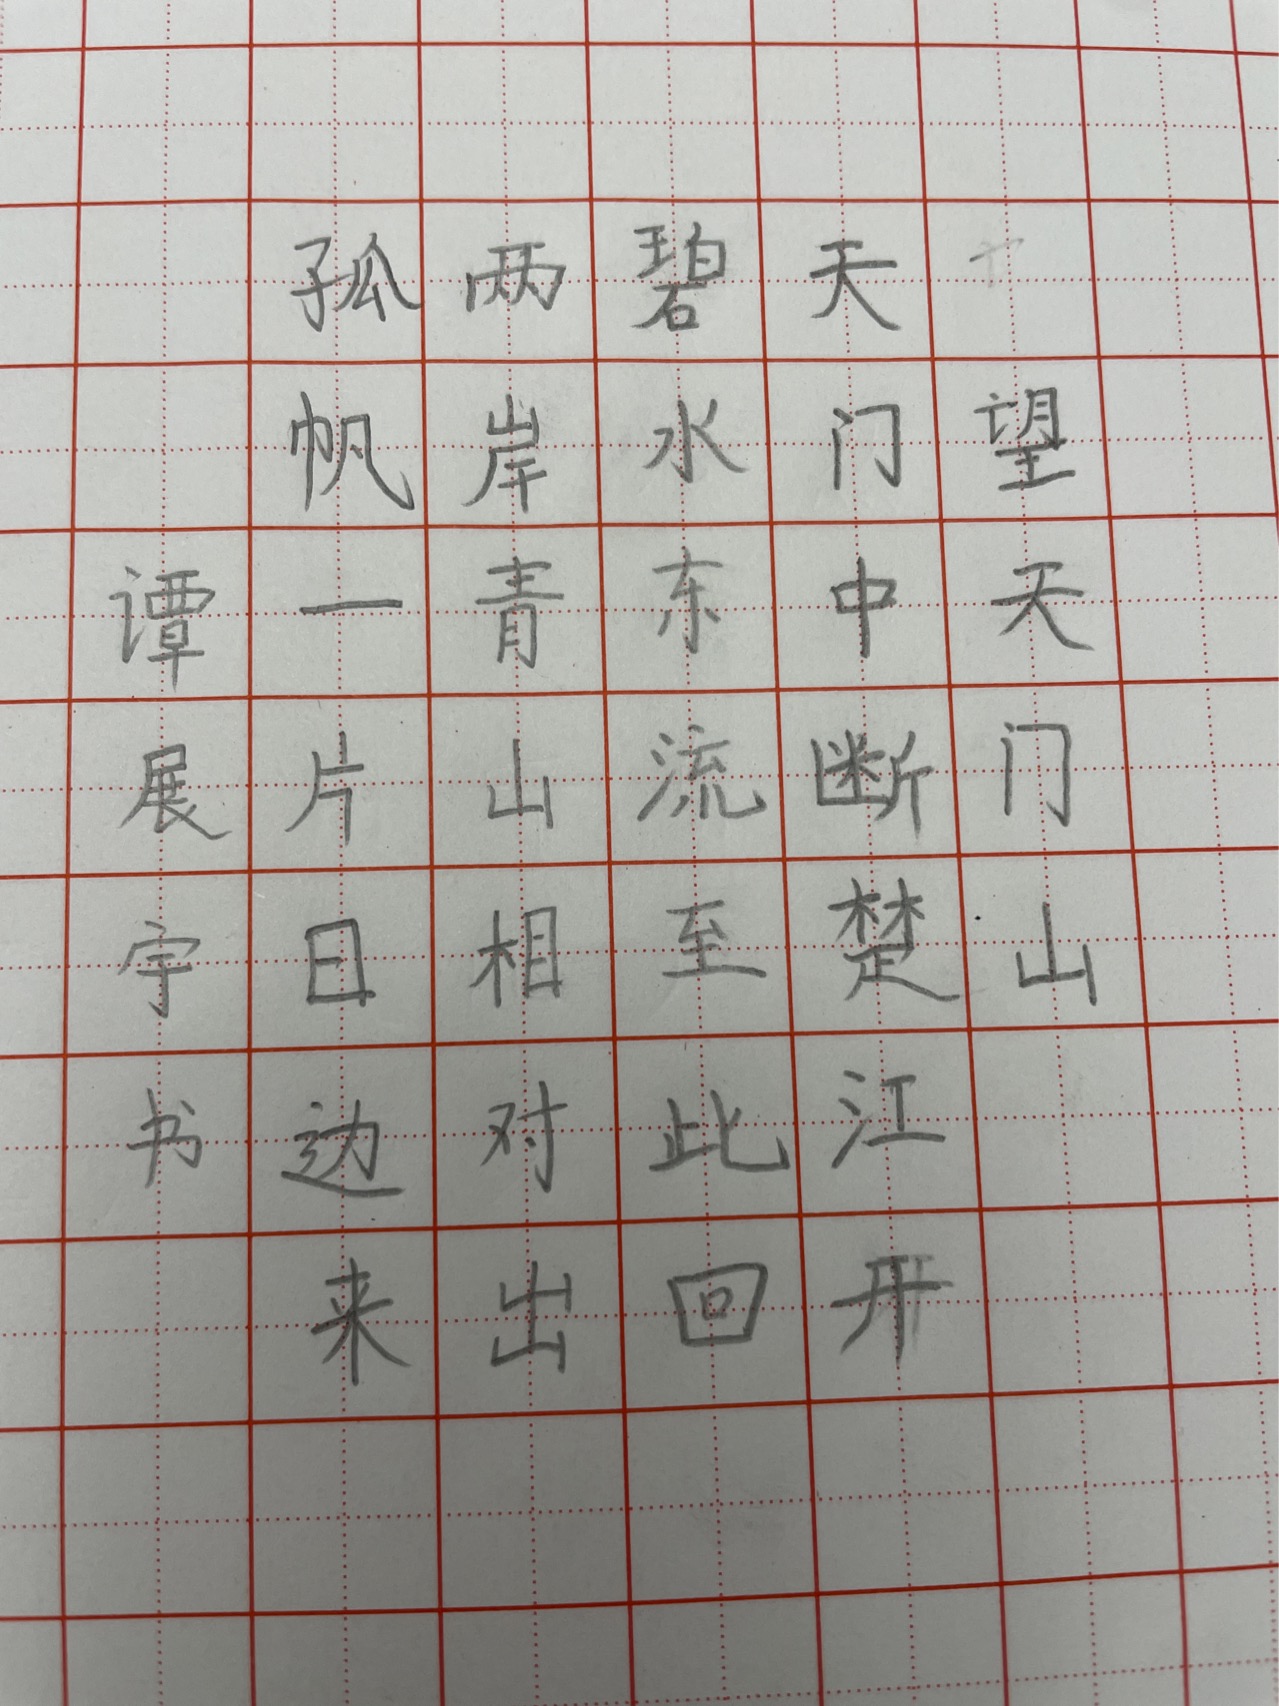 望天门山
天门中断楚江开
碧水东流至此回
两岸青山相对出
孤帆一片日边来
谭展宇书